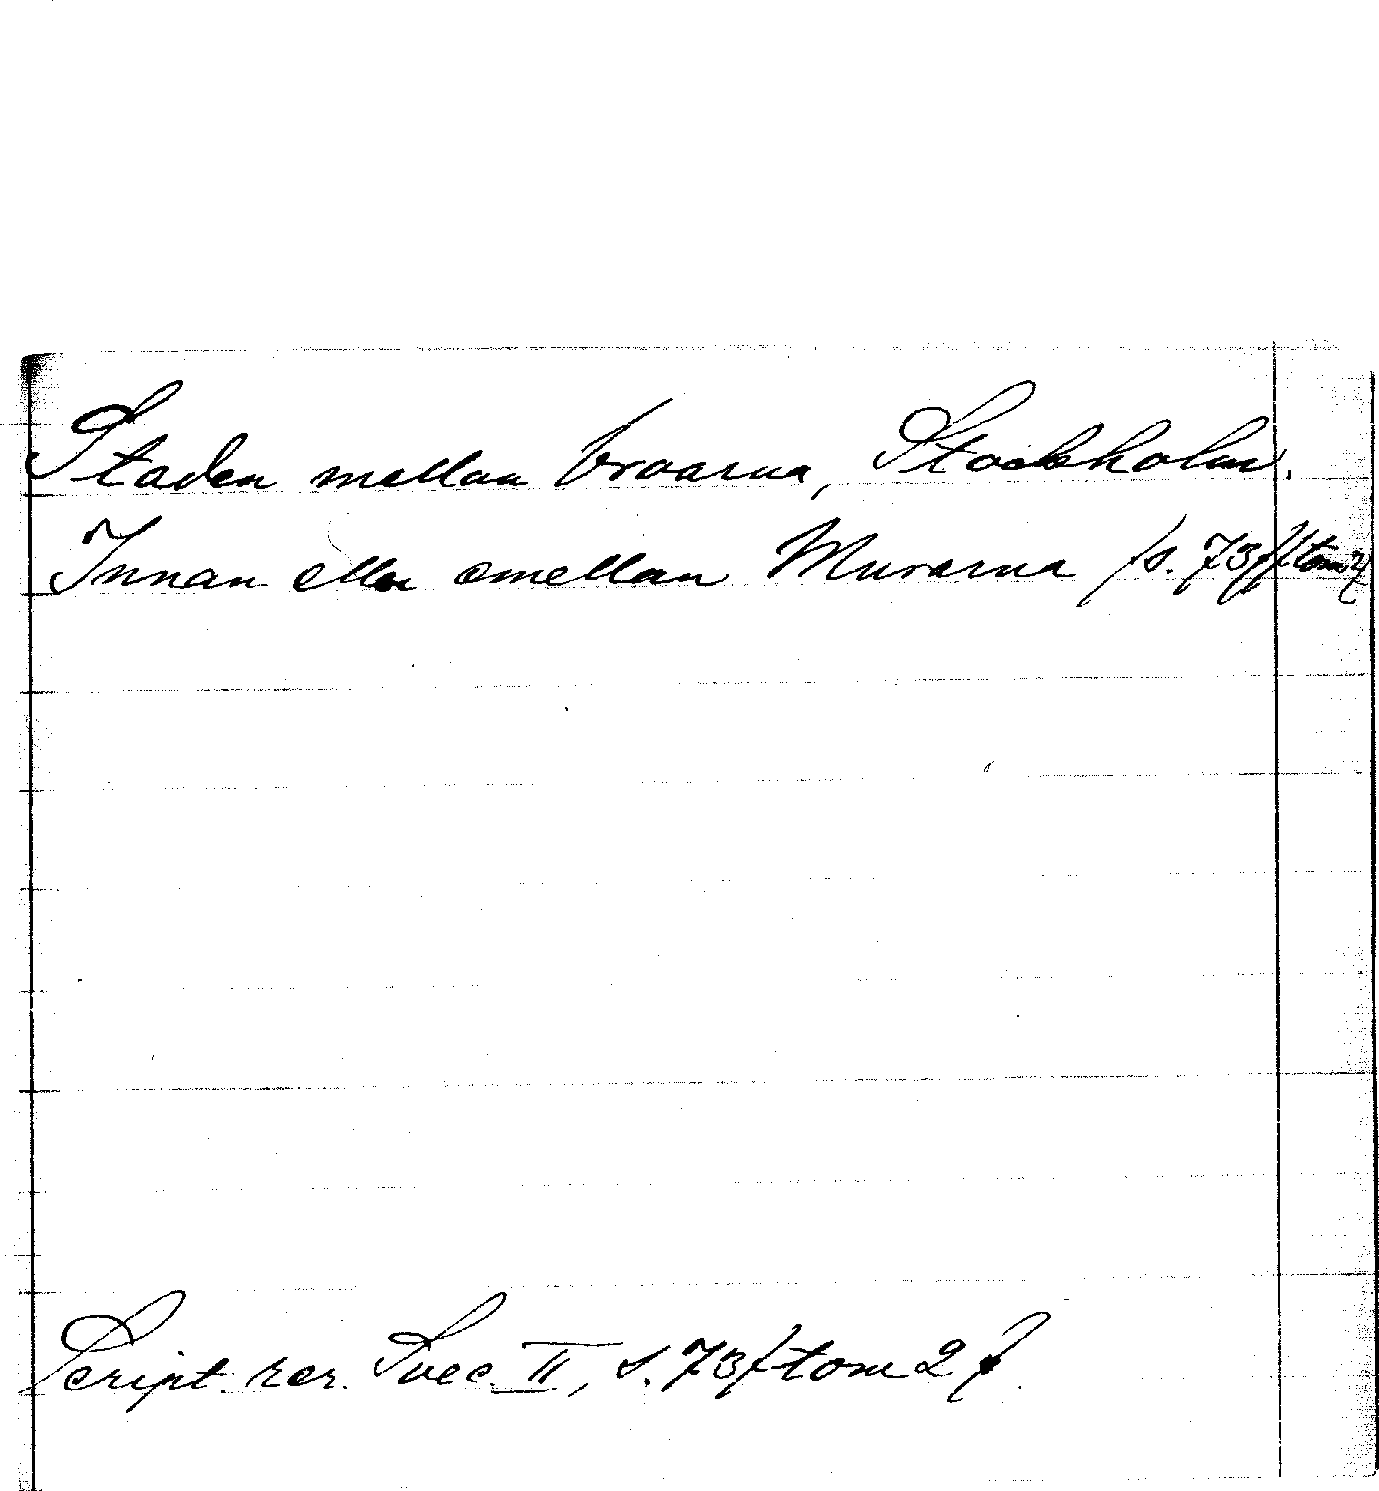 Staden mellan broarna, Stockholm.
Innan eller emellan Murarna /s. 73 /tom 2/
Script. rer. Svec. II, s. 73 /tom 2/.